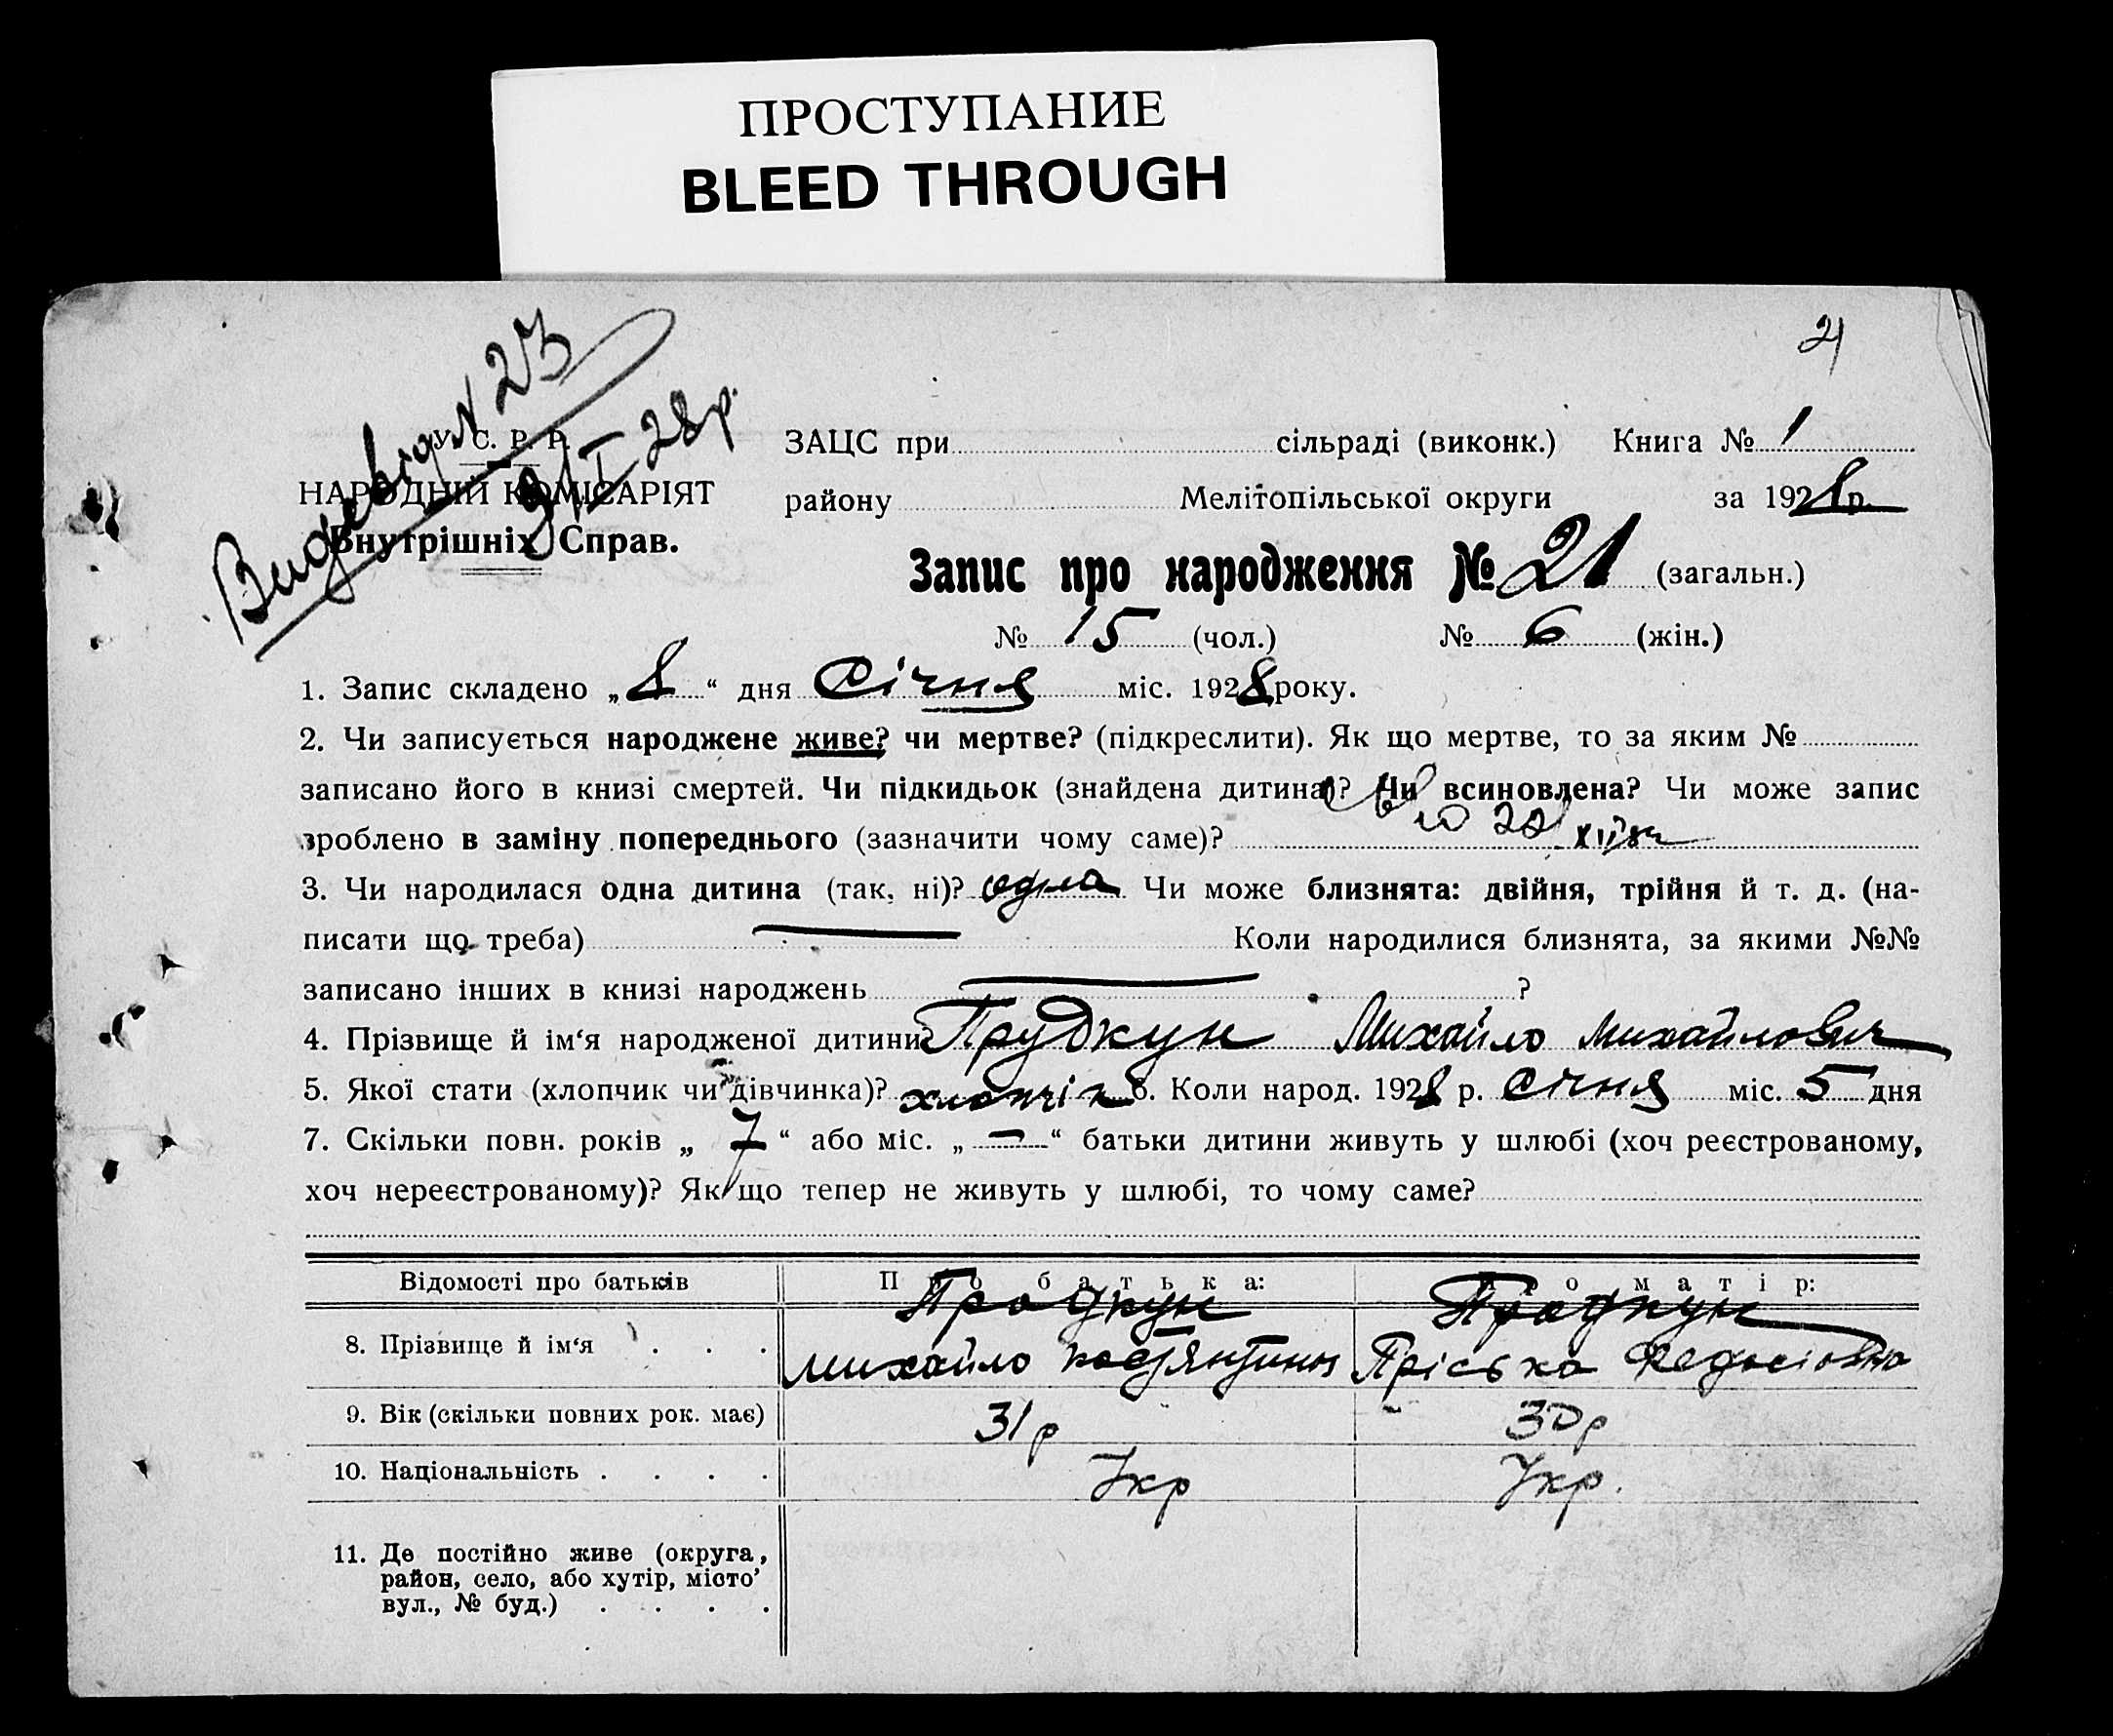 ПРОСТУПАНИЕ
BLEED THROUGH
21
Видав від N 23
9/I 28р.
У. С. Р. Р.
НАРОДНІЙ КОМІСАРІЯТ
Внутрішніх Справ.
ЗАЦС при сільраді (виконк.) Книга № 1
району Мелітопільської округи за 1928 р.
Запис про народження № 21 (загальн.)
№ 15 (чол.) № 6 (жін.)
1. Запис складено „8“ дня Січня міс. 1928 року.
2. Чи записується народжене живе? чи мертве? (підкреслити). Як що мертве, то за яким №
записано його в книзі смертей. Чи підкидьок (знайдена дитина)? Чи всиновлена? Чи може запис
зроблено в заміну попереднього (зазначити чому саме)?
3. Чи народилася одна дитина (так, ні)? одна Чи може близнята: двійня, трійня й т. д. (на-
писати що треба) — Коли народилися близнята, за якими №№
записано інших в книзі народжень — ?
4. Прізвище й ім‘я народженої дитини? Прудкун Михайло Михайлович
5. Якої стати (хлопчик чи дівчинка)? хлопчік 6. Коли народ. 1928 р. Січня міс. 5 дня
7. Скільки повн. років „7“ або міс. „—“ батьки дитини живуть у шлюбі (хоч реєстрованому,
хоч нереєстрованому)? Як що тепер не живуть у шлюбі, то чому саме?
Відомості про батьків Про батька: Про матір:
8. Прізвище й ім‘я . . . Прудкун Михайло Прудкун Пріська
9. Вік (скільки повних рок. має) 31р 30р
10. Національність . . . . Укр Укр.
11. Де постійно живе (округа,
район, село, або хутір, місто,
вул., № буд.) . . . .